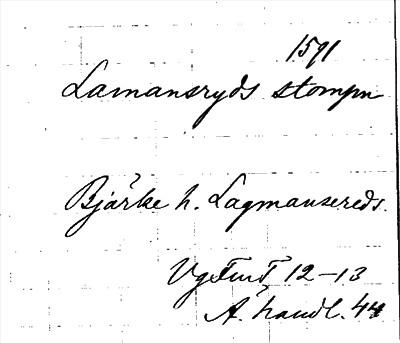 1591
Lamansryds stompn
Bjärke h. Lagmansereds.
VgFmT 12-13
A. handl. 44